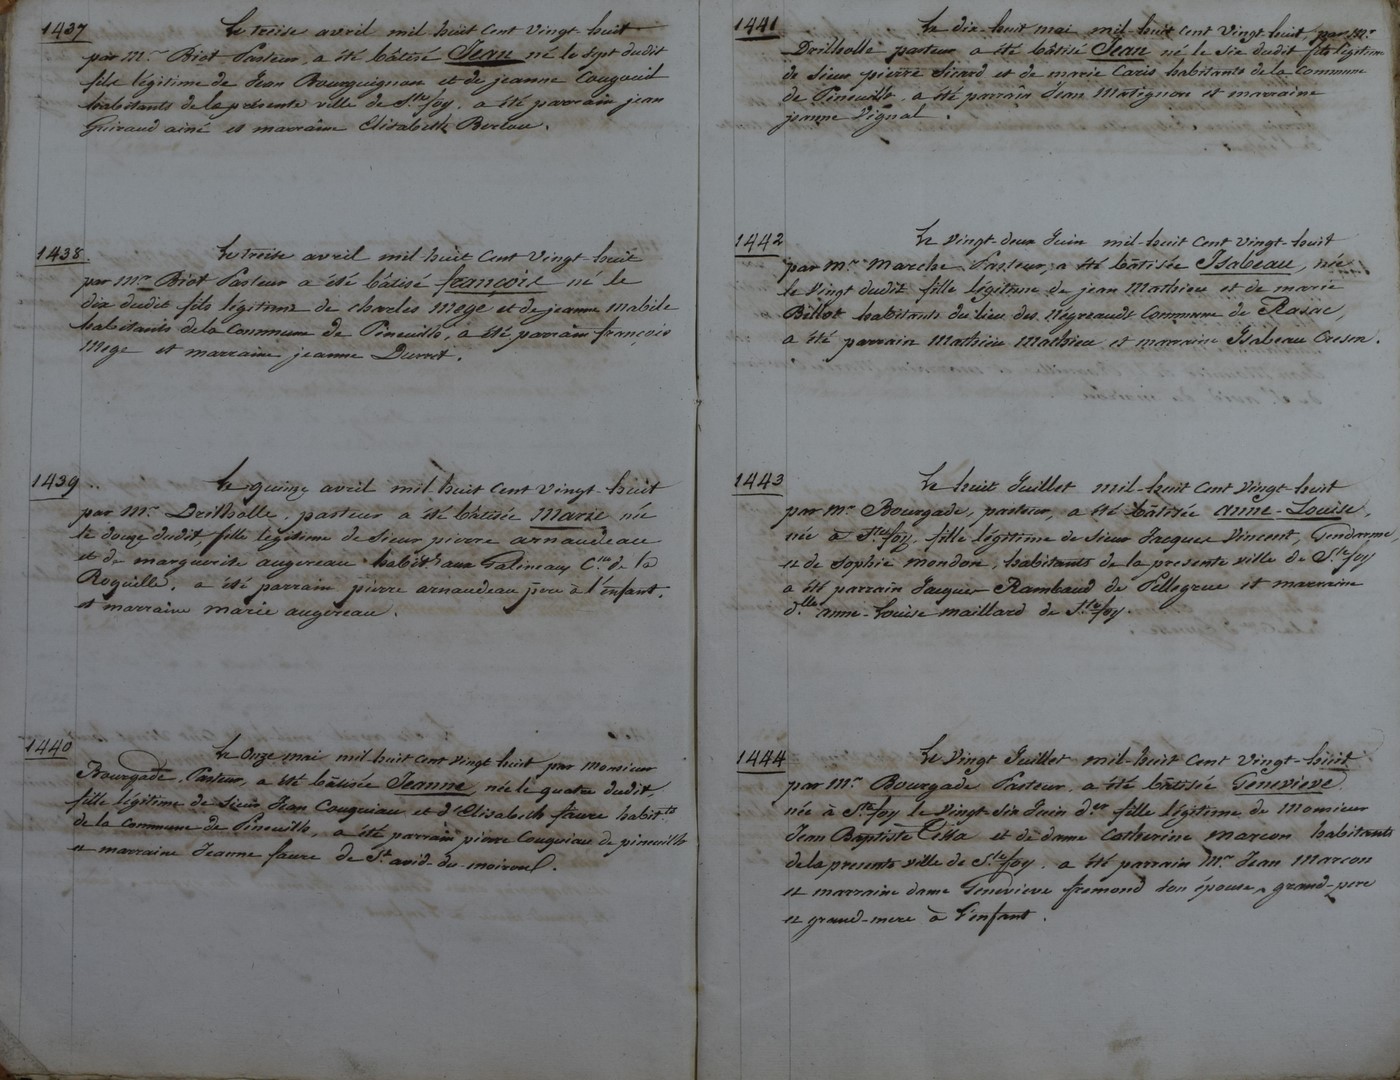 1437
Le treise avril mil huit cent vingt huit
par Mr. Biot Pasteur, a été bâtisé Jean né le sept dudit
fils légitime de Jean Bourguignon et de jeanne Cougouil
habitants de la présente ville de Ste foy, a été parrain jean
Guiraud ainé et marraine Elisabeth Bertau.
1438.
Le treise avril mil huit cent vingt huit
par Mr. Biot Pasteur a été bâtisé françois né le
dix dudit fils légitime de charles Mege et de jeanne Mabile
habitants de la Commune de Pineuilh, a été parrain françois
Mege et marraine jeanne Durret.
1439
Le quinze avril mil huit cent vingt-huit
par Mr. Drilholle, pasteur a été bâtisée Marie née
le douze dudit, fille legitime de Sieur pierre arnaudeau
et de marguerite augereau habitts aux Galineaux Cne de la
Roquille, a été parrain pierre arnaudeau père à l'enfant,
et marraine marie augereau.
1440
Le Onze mai mil huit cent vingt huit par monsieur
Bourgade, Pasteur, a été bâtisée Jeanne, née le quatre dudit,
fille légitime de Sieur Jean Cougniau et d'Elisabeth faure habitts
de la commune de Pineuilh, a été parrain pierre Cougniau de pineuilh
et marraine Jeanne faure de St avid du moiron.
1441
Le dix-huit mai mil-huit cent vingt-huit par Mr
Drilholle pasteur a été bâtisé Jean né le six dudit fils légitime
de Sieur pierre Sicard et de marie Caris habitants de la Commune
de Pineuilh, a été parrain Jean Matignon et marraine
jeanne Vignal.
1442
Le Vingt-deux Juin mil-huit cent vingt-huit
par Mr. Marche Pasteur, a été bâtisée Isabeau, née
le Vingt dudit fille légitime de jean Mathieu et de marie
Billot habitants du lieu des Négreauds Commune de Rasac,
a été parrain Mathieu Mathieu et marraine Isabeau Creson.
1443
Le huit Juillet mil-huit cent vingt-huit
par Mr Bourgade, pasteur, a été bâtisée anne-Louise,
née à Ste foy, fille légitime de Sieur Jacques Vincent, Gendarme,
et de Sophie mondon, habitants de la presente ville de Ste foy
a été parrain Jacques Rambaud de Pellegrue et marraine
dlle anne-Louise maillard de Ste foy.
1444
Le Vingt Juillet mil-huit cent vingt-huit
par Mr. Bourgade Pasteur, a été bâtisée Genevieve
née à Ste foy le vingt-six Juin der fille légitime de Monsieur
Jean Baptiste et de dame Catherine Marcon habitants
de la presente ville de Ste foy, a été parrain Mr. Jean Marcon
et marraine dame Genevieve fremond son épouse, grand-pere
et grand-mere à l'enfant.